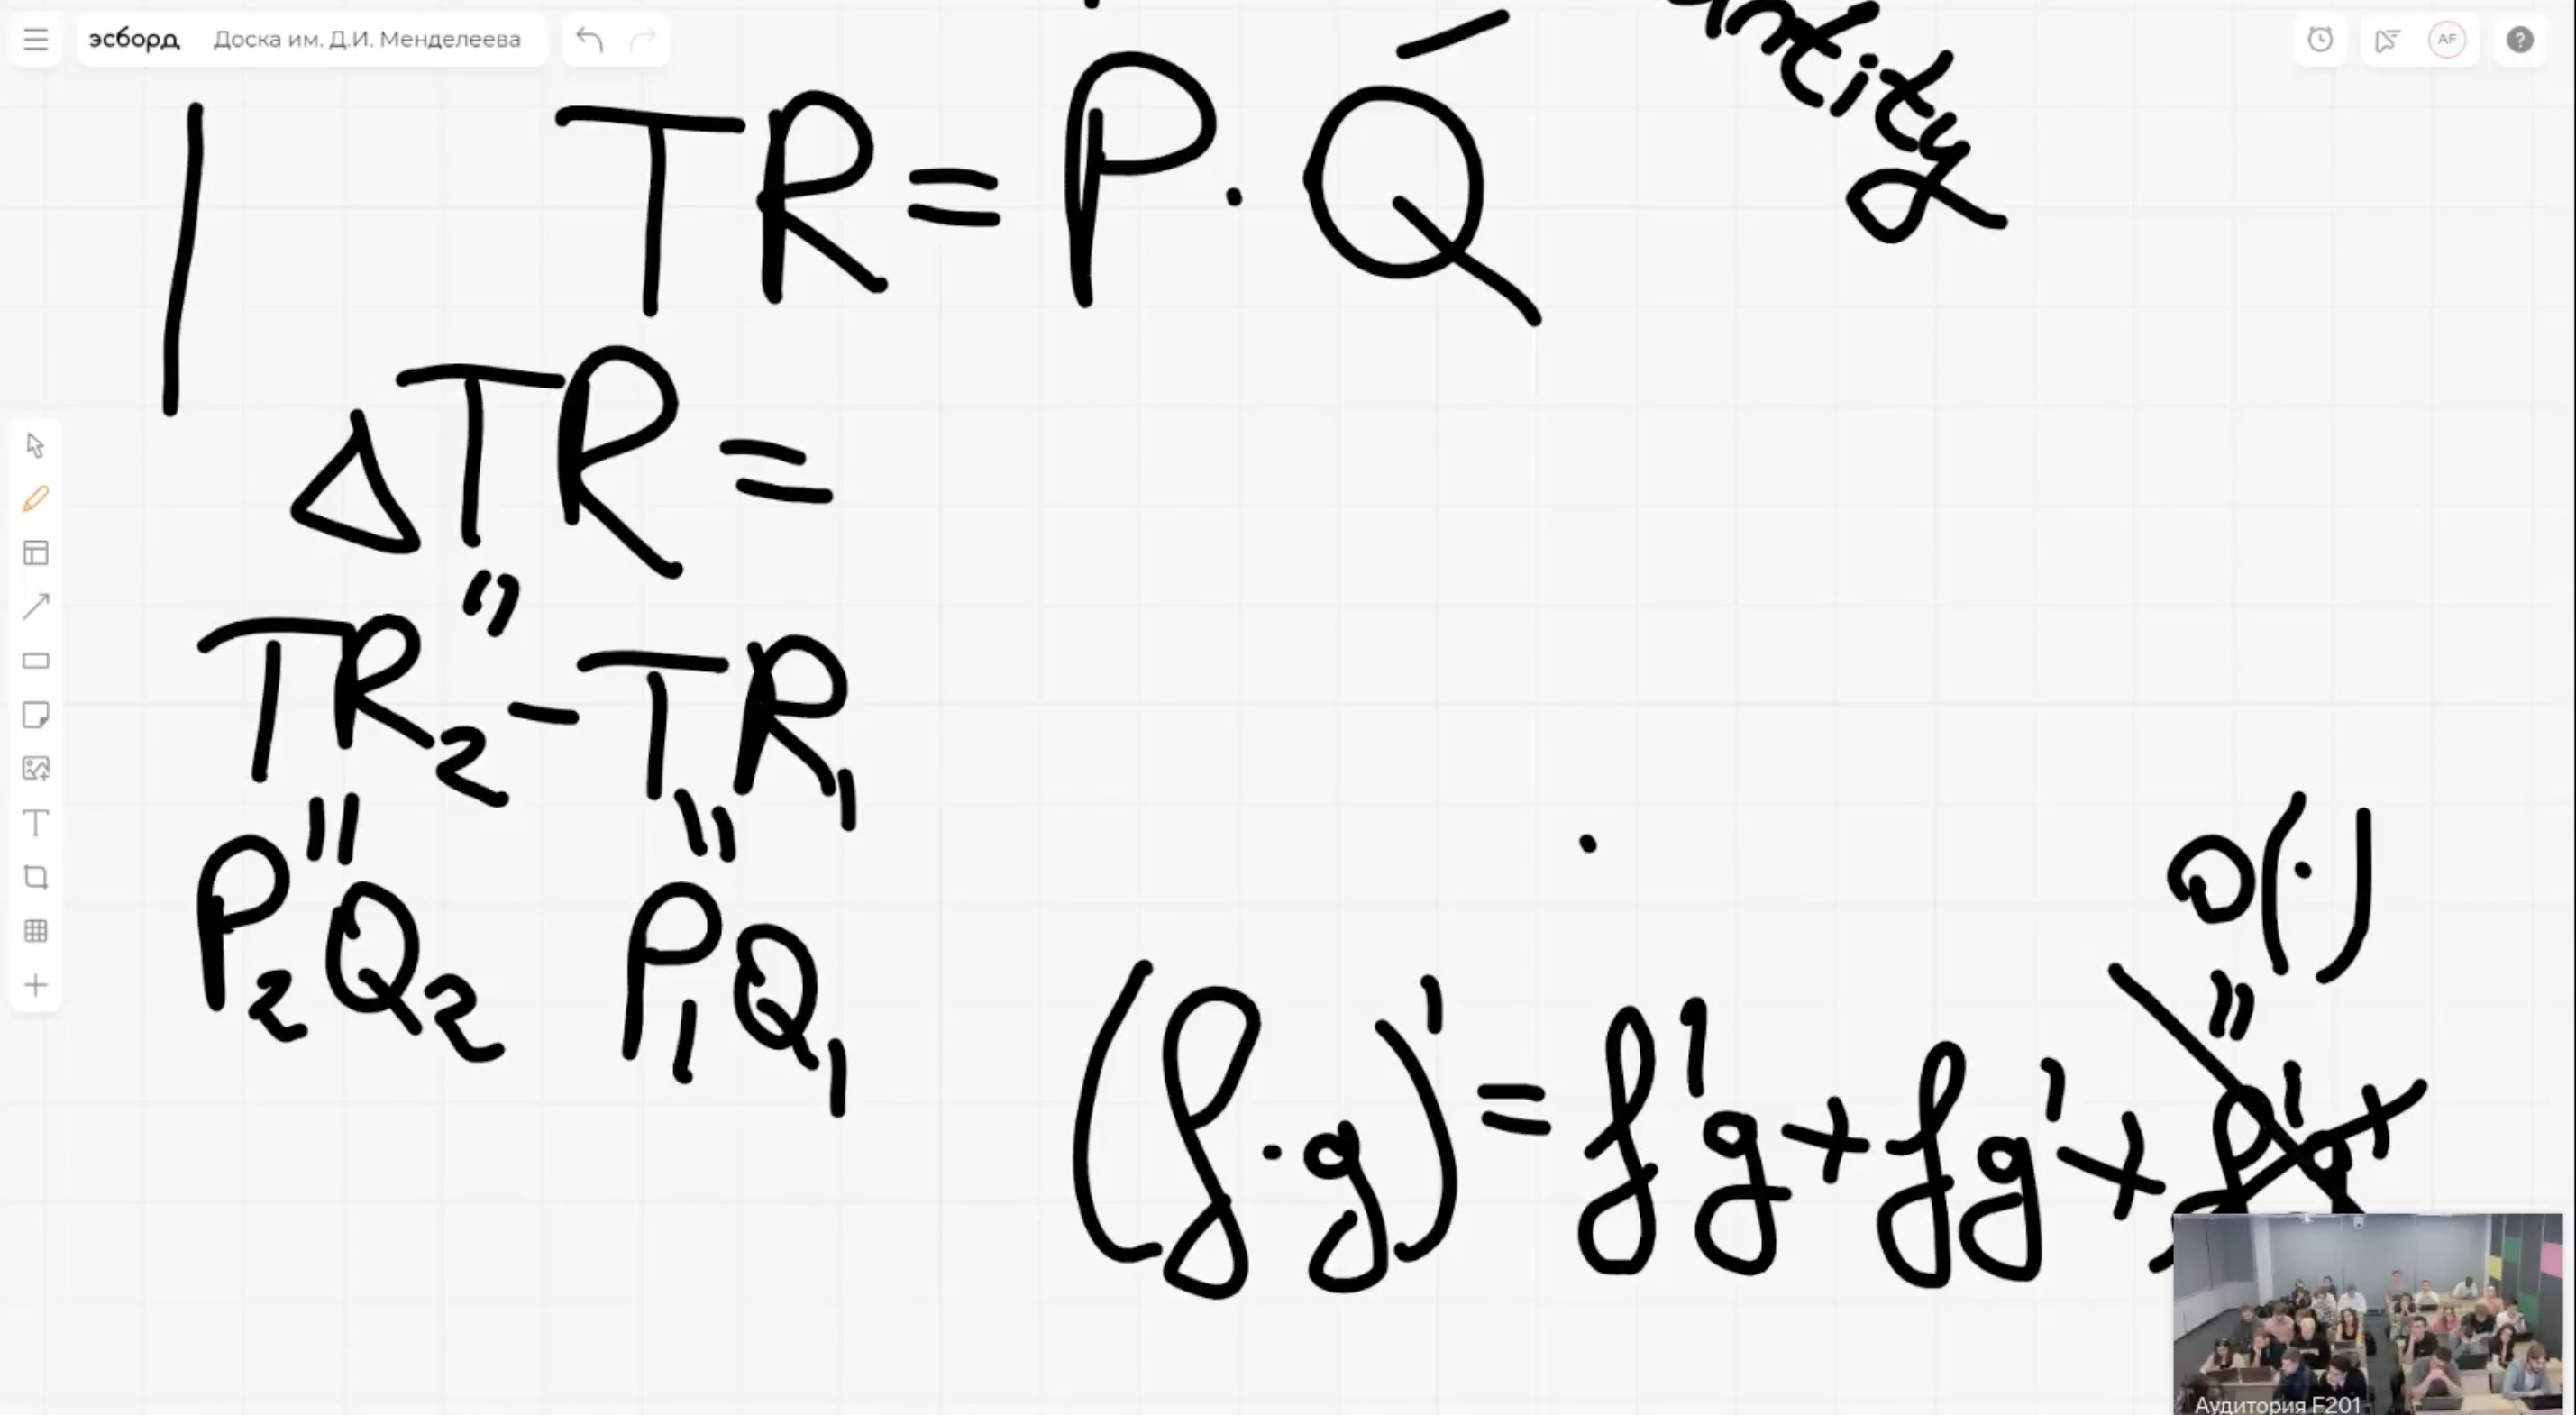 эсборд Доска им. Д.И. Менделеева
AF ?
TR = P · Q
ΔTR =
"
TR₂ - TR₁
" "
P₂Q₂ P₁Q₁
o(·)
"
(f·g)' = f'g + fg' + f'g'
Аудитория F201